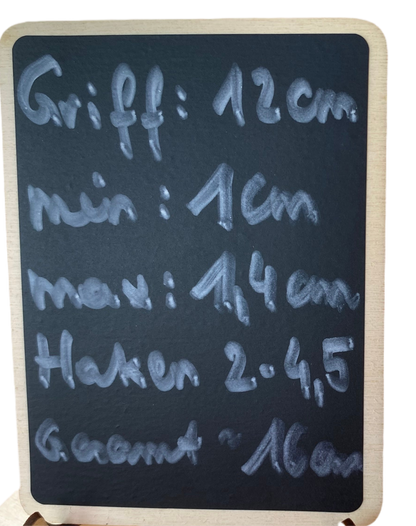 Griff: 12cm
min: 1cm
max: 1,4cm
Haken 2-4,5
Gesamt ~ 16cm